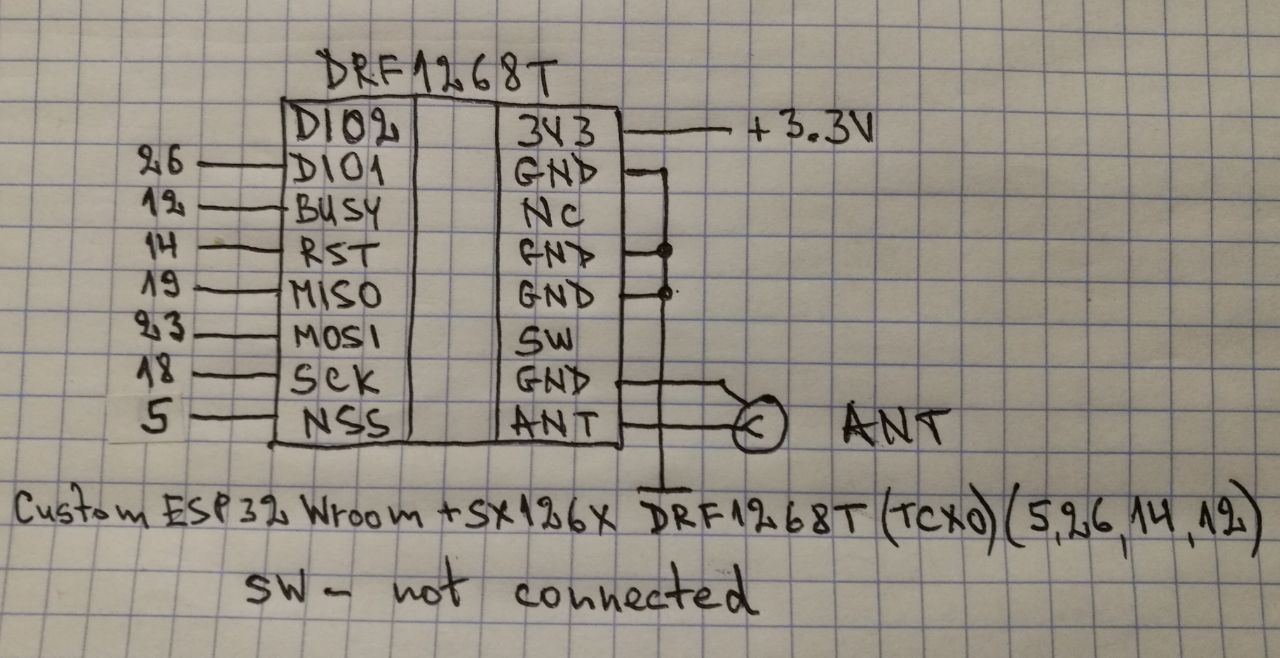 DRF1268T
DIO2 3V3 +3.3V
26 DIO1 GND
12 BUSY NC
14 RST GND
19 MISO GND
23 MOSI SW
18 SCK GND
5 NSS ANT ANT
Custom ESP32 Wroom + SX126X DRF1268T (TCXO) (5,26,14,12)
SW - not connected